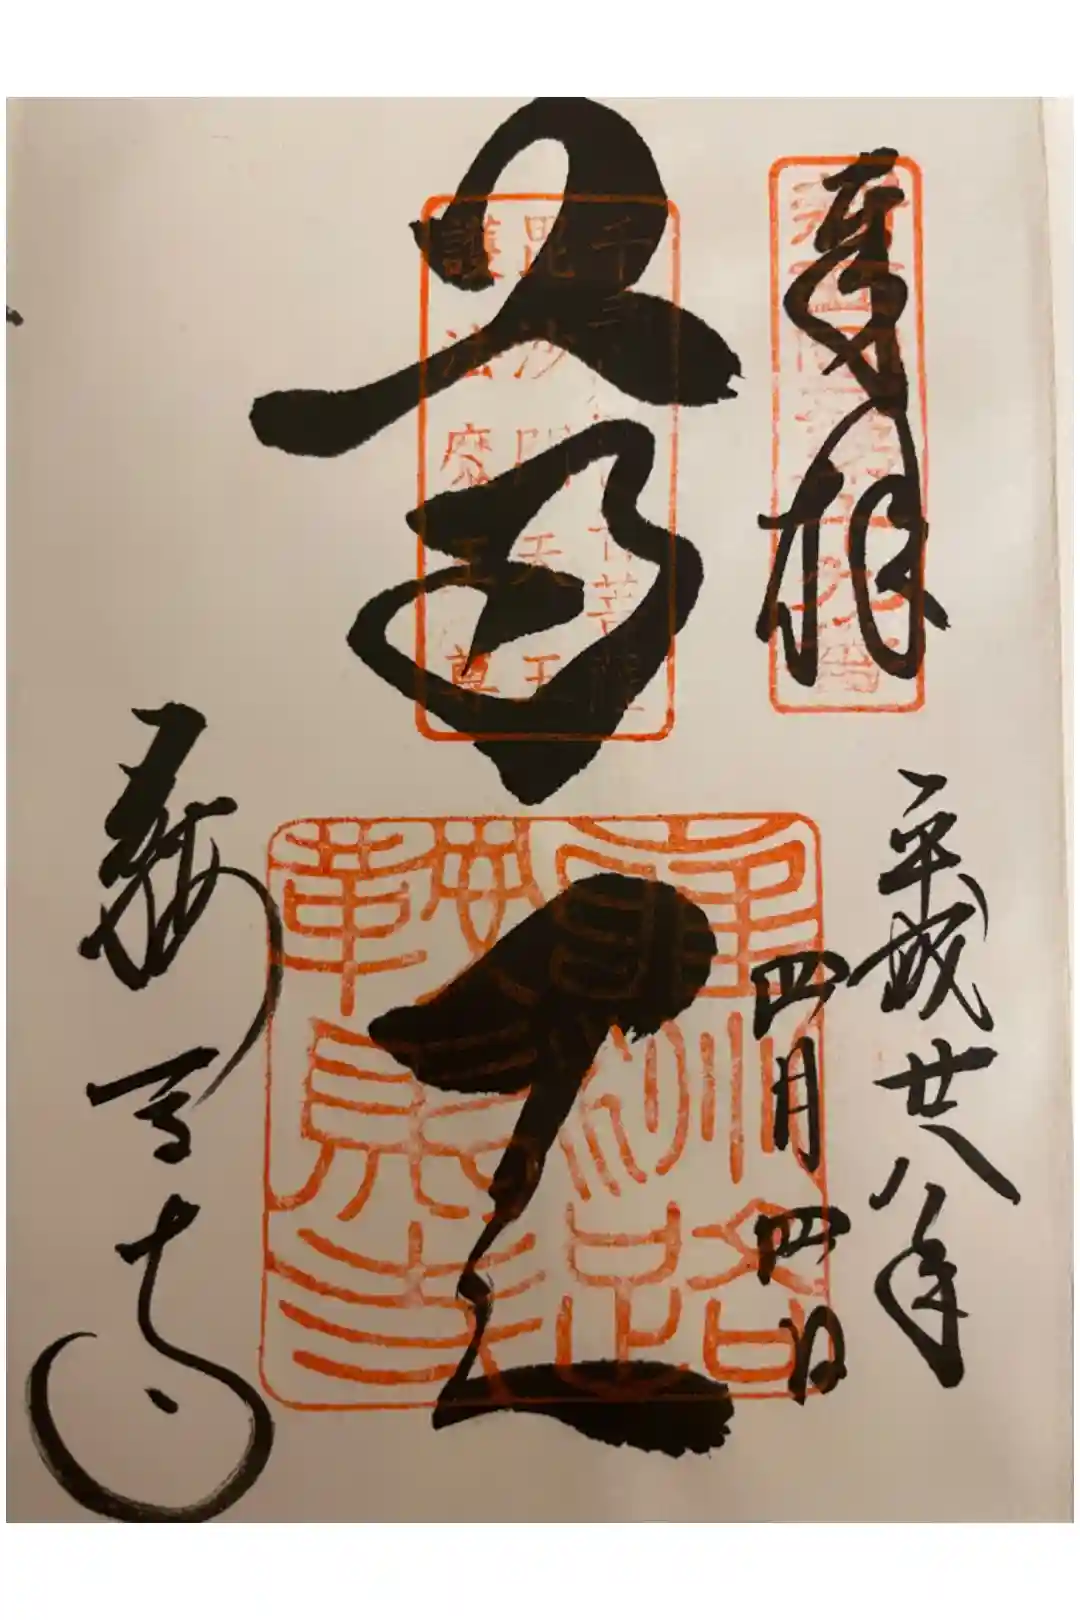 奉拝
平成廿八年
四月四日
千手観世音菩薩
毘沙門天王
護法魔王尊
尊天
鞍馬寺